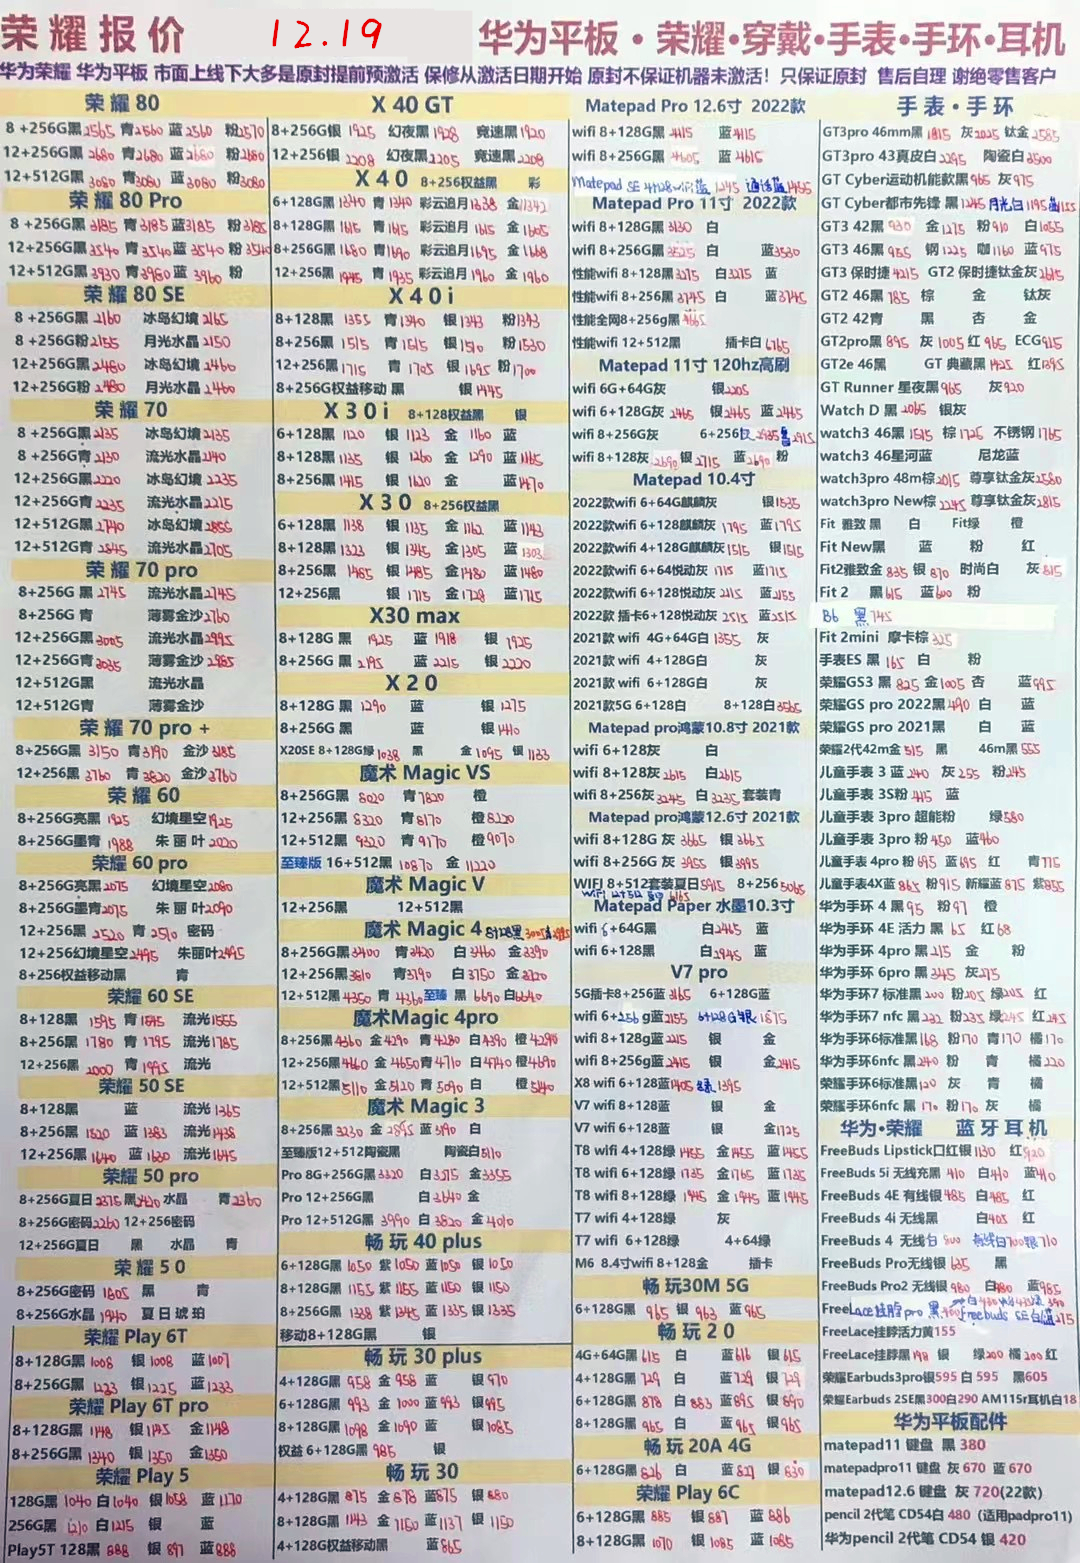 荣耀报价 12.19 华为平板·荣耀·穿戴·手表·手环·耳机
华为荣耀 华为平板 市面上线下大多是原封提前预激活 保修从激活日期开始 原封不保证机器未激活！只保证原封 售后自理 谢绝零售客户
荣耀80
8+256G黑2565 青2560 蓝2560 粉2570
12+256G黑2680 青2680 蓝2680 粉2680
12+512G黑3080 青3080 蓝3080 粉3080
荣耀80 Pro
8+256G黑3185 青3185 蓝3185 粉3185
12+256G黑3540 青3540 蓝3540 粉3540
12+512G黑3930 青3980 蓝3960 粉
荣耀80 SE
8+256G黑2160 冰岛幻境2165
8+256G粉2155 月光水晶2150
12+256G黑2480 冰岛幻境2460
12+256G粉2480 月光水晶2460
荣耀70
8+256G黑2135 冰岛幻境2135
8+256G青2130 流光水晶2140
12+256G黑2220 冰岛幻境2235
12+256G青2235 流光水晶2215
12+512G黑2740 冰岛幻境2855
12+512G青2845 流光水晶2705
荣耀70 pro
8+256G黑2745 流光水晶2745
8+256G青 薄雾金沙2760
12+256G黑3005 流光水晶2995
12+256G青3035 薄雾金沙2985
12+512G黑 流光水晶
12+512G青 薄雾金沙
荣耀70 pro +
8+256G黑3150 青3190 金沙3185
12+256黑3760 青3820 金沙3760
荣耀60
8+256G亮黑1925 幻境星空1925
8+256G墨青1988 朱丽叶2020
荣耀60 pro
8+256G亮黑2075 幻境星空2080
8+256G墨青2075 朱丽叶2090
12+256黑2520 青2510 密码
12+256幻境星空2495 朱丽叶2495
8+256权益移动黑 青
荣耀60 SE
8+128黑1595 青1545 流光1555
8+256黑1780 青1795 流光1785
12+256黑2000 青1995 流光
荣耀50 SE
8+128黑 蓝 流光1365
8+256黑1520 蓝1383 流光1438
12+256黑1640 蓝1630 流光1645
荣耀50 pro
8+256G夏日2375 黑2420 水晶 青2360
8+256G密码2260 12+256密码
12+256G夏日 黑 水晶 青
荣耀50
8+256G密码1805 黑 青
8+256G水晶1940 夏日琥珀
荣耀Play 6T
8+128G黑1008 银1008 蓝1007
8+256G黑1233 银1225 蓝1233
荣耀Play 6T pro
8+128G黑1148 银1145 金1148
8+256G黑1340 银1350 金1350
荣耀Play 5
128G黑1040 白1040 银1058 蓝1170
256G黑1210 白1215 银 蓝
Play5T 128黑888 银897 蓝888
X 40 GT
8+256G银1925 幻夜黑1928 竞速黑1920
12+256银2208 幻夜黑2205 竞速黑2208
X40 8+256权益黑 彩
6+128G黑1340 青1340 彩云追月1338 金1342
8+128G黑1615 青1615 彩云追月1615 金1605
8+256G黑1680 青1690 彩云追月1695 金1668
12+256黑1945 青1935 彩云追月1960 金1960
X40i
8+128黑1355 青1340 银1343 粉1343
8+256黑1515 青1515 银1510 粉1530
12+256黑1715 青1705 银1695 粉1700
8+256G权益移动黑 银1445
X30i 8+128权益黑 银
6+128黑1120 银1123 金1160 蓝
8+128黑1135 银1260 金1290 蓝1165
8+256黑1415 银1620 金 蓝1470
X30 8+256权益黑
6+128黑1138 银1135 金1162 蓝1143
8+128黑1323 银1345 金1305 蓝1303
8+256黑1485 银1485 金1480 蓝1480
12+256黑 银1715 金1728 蓝1715
X30 max
8+128G黑1925 蓝1918 银1925
8+256G黑2195 蓝2215 银2220
X20
8+128G黑1290 蓝 银1275
8+256G黑 蓝 银1410
X20SE 8+128G绿1038 黑 金1095 银1133
魔术 Magic VS
8+256G黑8020 青7820 橙
12+256黑8320 青8170 橙8220
12+512黑9320 青9170 橙9070
至臻版 16+512黑10870 金11220
魔术 Magic V
12+256黑 12+512黑
魔术 Magic 4 8+128黑3005
8+256G黑3400 青3420 白3460 金3390
12+256黑3810 青3790 白3750 金3820
12+512黑4350 青4360 至臻 黑6690 白6640
魔术Magic 4pro
8+256黑4360 金4290 青4280 白4390 橙4290
12+256黑4660 金4650 青4710 白4740 橙4690
12+512黑5110 金5120 青5090 白 橙5140
魔术 Magic 3
8+256黑3230 金2895 蓝3190 白
至臻版12+512陶瓷黑 陶瓷白5110
Pro 8G+256G黑3320 白3275 金3355
Pro 12+256G黑 白3640 金
Pro 12+512G黑3990 白3820 金4010
畅玩40 plus
6+128G黑1050 紫1050 蓝1050 银1050
8+128G黑1155 紫1155 蓝1150 银1150
8+256G黑1338 紫1345 蓝1335 银1335
移动8+128G黑 银
畅玩30 plus
4+128G黑958 金958 蓝 银970
6+128G黑993 金1000 蓝993 银995
8+128G黑1098 金1090 蓝 银1085
权益6+128G黑985 银
畅玩30
4+128G黑875 金878 蓝875 银880
8+128G黑1143 金1150 蓝1137 银1150
4+128G权益移动黑 蓝865
Matepad Pro 12.6寸 2022款
wifi 8+128G黑4115 蓝4115
wifi 8+256G黑4605 蓝4615
Matepad SE 4+128 wifi蓝1245 通话蓝1455
Matepad Pro 11寸 2022款
wifi 8+128G黑3130 白
wifi 8+256G黑3525 白 蓝3530
性能wifi 8+128黑3275 白3275 蓝
性能wifi 8+256黑3745 白 蓝3745
性能全网8+256g黑4665
性能wifi 12+512黑 插卡白6765
Matepad 11寸 120hz高刷
wifi 6G+64G灰 银2205
wifi 6+128G灰2465 银2465 蓝2465
wifi 8+256G灰 6+256灰2935 蓝2915
wifi 8+128灰2690 银2715 蓝2690 粉
Matepad 10.4寸
2022款wifi 6+64G麒麟灰 银1535
2022款wifi 6+128麒麟灰1795 蓝1795
2022款wifi 4+128G麒麟灰1515 银1515
2022款wifi 6+64悦动灰1715 蓝1715
2022款wifi 6+128悦动灰2115 蓝2155
2022款 插卡6+128悦动灰2515 蓝2515
2021款wifi 4G+64G白1355 灰
2021款wifi 4+128G白 灰
2021款wifi 6+128G白 灰
2021款5G 6+128白 8+128白3565
Matepad pro鸿蒙10.8寸 2021款
wifi 6+128灰 白
wifi 8+128灰2615 白2615
wifi 8+256灰3245 白3235 套装青
Matepad pro鸿蒙12.6寸 2021款
wifi 8+128G灰3665 银3665
wifi 8+256G灰3955 银3995
WIFI 8+512套装夏日5915 8+256 5065
Matepad Paper 水墨10.3寸
wifi 6+64G黑 白2465 蓝
wifi 6+128黑 白2945 蓝
V7 pro
5G插卡8+256蓝3165 6+128G蓝
wifi 6+256g蓝2155 6+128G银1875
wifi 8+128g蓝2115 银 金
wifi 8+256g蓝2415 银 金2415
X8 wifi 6+128蓝1405 绿1395
V7 wifi 8+128蓝 银 金
V7 wifi 6+128蓝 银 金1725
T8 wifi 4+128绿1455 金1455 蓝1455
T8 wifi 6+128绿1735 金1765 蓝1735
T8 wifi 8+128绿1945 金1945 蓝1945
T7 wifi 4+128绿 灰
T7 wifi 6+128绿 4+64绿
M6 8.4寸wifi 8+128金 插卡
畅玩30M 5G
6+128G黑965 银963 蓝965
畅玩20
4G+64G黑615 白 蓝616 银615
4+128G黑729 白 蓝729 银729
6+128G黑878 白883 蓝895 银890
8+128G黑965 白 蓝965 银965
畅玩20A 4G
6+128G黑826 白 蓝827 银830
荣耀Play 6C
6+128G黑885 银887 蓝886
8+128G黑1070 银1085 蓝1085
手表·手环
GT3pro 46mm黑1815 灰2025 钛金2585
GT3pro 43真皮白2295 陶瓷白3500
GT Cyber运动机能款黑965 灰975
GT Cyber都市先锋 黑1245 月光白1195 蓝1155
GT3 42黑930 金1275 粉910 白1055
GT3 46黑955 钢1225 咖1160 蓝975
GT3 保时捷4215 GT2 保时捷钛金灰2615
GT2 46黑785 棕 金 钛灰
GT2 42青 黑 杏 金
GT2pro黑895 灰1005 红965 ECG915
GT2e 46黑 GT 典藏黑1425 红1395
GT Runner 星夜黑965 灰920
Watch D 黑2065 银灰
watch3 46黑1515 棕1725 不锈钢1765
watch3 46星河蓝 尼龙蓝
watch3pro 48m棕2015 尊享钛金灰2580
watch3pro New棕2245 尊享钛金灰2815
Fit 雅致黑 白 Fit绿 橙
Fit New黑 蓝 粉 红
Fit2雅致金835 银870 时尚白 灰815
Fit 2 黑615 蓝600 粉
B6 黑745
Fit 2mini 摩卡棕325
手表ES 黑165 白 粉
荣耀GS3 黑825 金1005 杏 蓝995
荣耀GS pro 2022黑490 白 蓝
荣耀GS pro 2021黑 白 蓝
荣耀2代42m金515 黑 46m黑555
儿童手表3 蓝240 灰255 粉245
儿童手表3S粉415 蓝
儿童手表3pro 超能粉 绿580
儿童手表3pro 粉450 蓝460
儿童手表4pro 粉695 蓝695 红 青775
儿童手表4X蓝865 粉915 新耀蓝875 紫855
华为手环4 黑95 粉97 橙
华为手环4E 活力 黑65 红68
华为手环4pro 黑215 金 粉
华为手环6pro 黑345 灰275
华为手环7 标准黑200 粉205 绿205 红
华为手环7 nfc 黑232 粉235 绿245 红245
华为手环6标准黑168 粉170 青170 橘170
华为手环6nfc 黑240 粉 青 橘220
荣耀手环6标准黑120 灰 青 橘
荣耀手环6nfc 黑170 粉170 灰 橘
华为·荣耀 蓝牙耳机
FreeBuds Lipstick口红银1130 红920
FreeBuds 5i 无线充黑410 白410 蓝410
FreeBuds 4E 有线银485 白485 红
FreeBuds 4i 无线黑 白405 红
FreeBuds 4 无线白800 有线白700 银710
FreeBuds Pro无线银635 黑
FreeBuds Pro2 无线银980 白980 蓝985
FreeLace挂脖pro 黑400 Freebuds SE白蓝275
FreeLace挂脖活力黄155
FreeLace挂脖黑198 银 绿200 橘200 红
荣耀Earbuds3pro银595 白595 黑605
荣耀Earbuds 2SE黑300白290 AM115r耳机白18
华为平板配件
matepad11 键盘 黑380
matepadpro11 键盘 灰670 蓝670
matepad12.6 键盘 灰720(22款)
pencil 2代笔 CD54白480（适用padpro11)
华为pencil 2代笔 CD54 银420